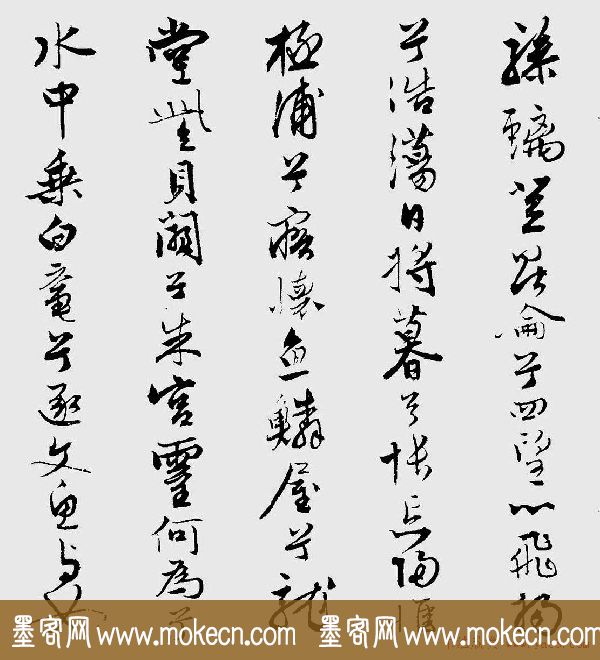 骖螭登昆侖兮四望心飛揚
兮浩蕩日将暮兮悵忘歸惟
極浦兮寤懷魚鱗屋兮龍
堂紫貝闕兮朱宮靈何為兮
水中乘白黿兮逐文魚與女
墨客网 www.mokecn.com 墨客网 www.mokecn.com